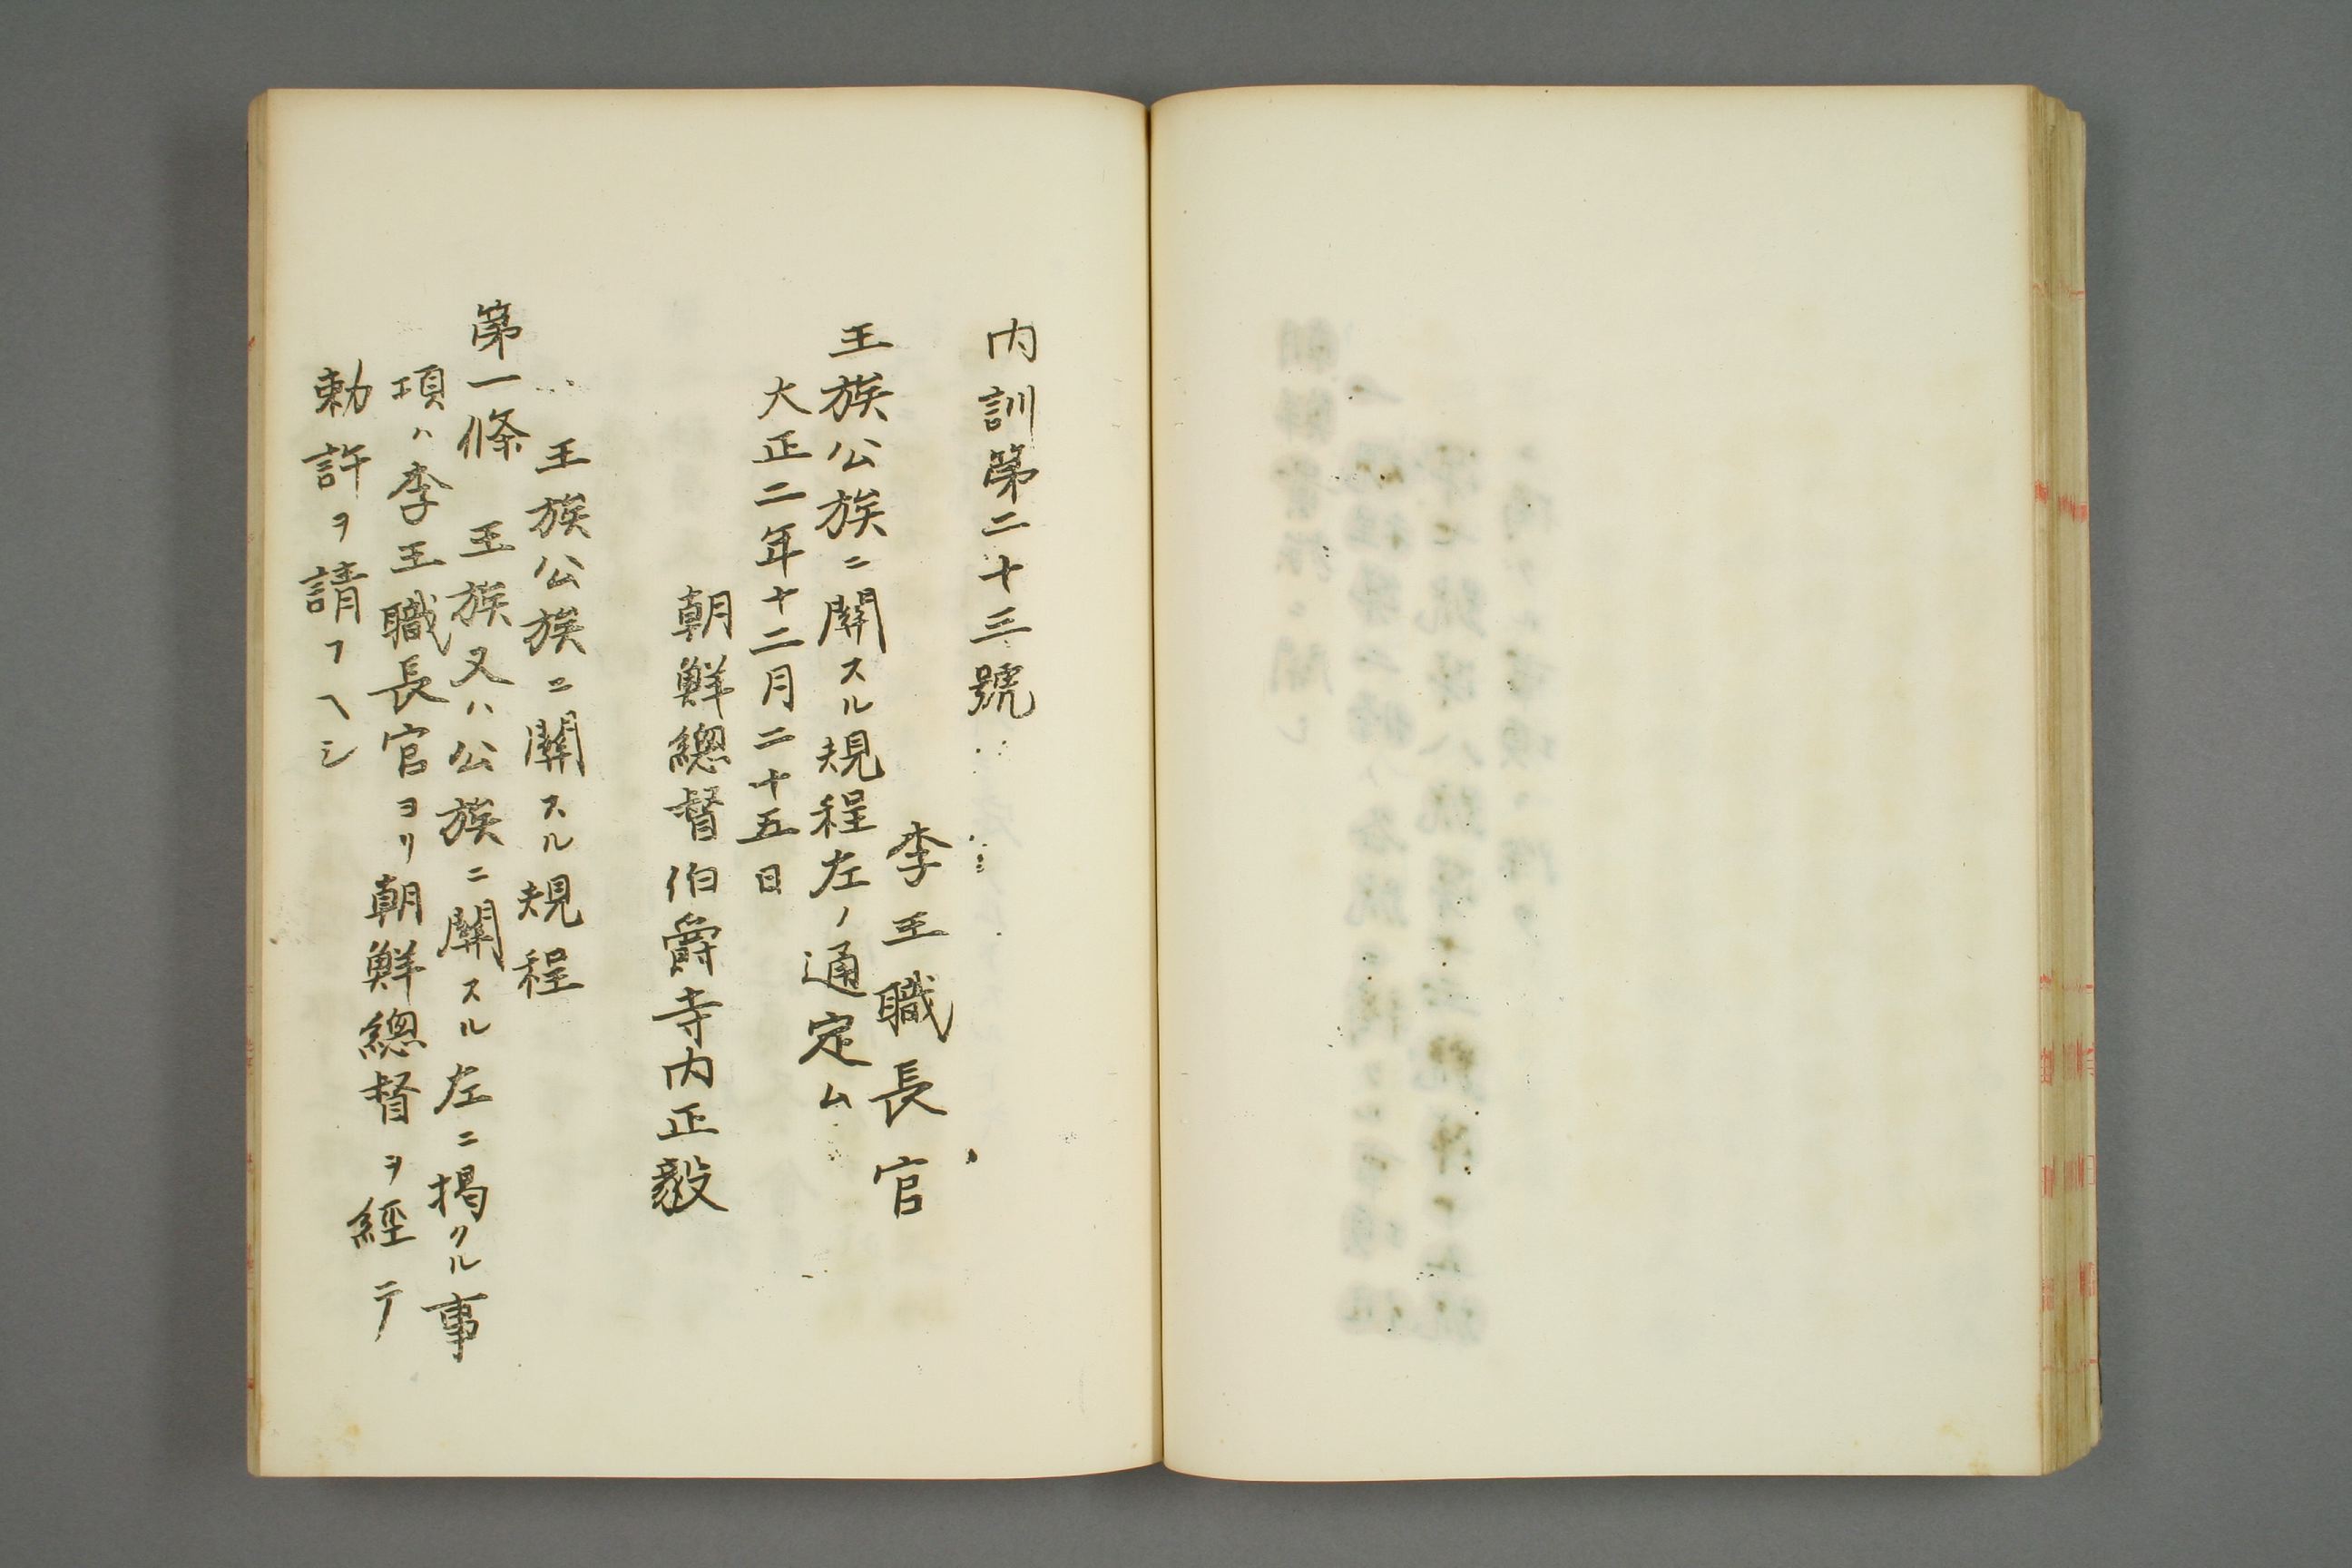 内訓第二十三號
李王職長官
王族公族ニ關スル規程左ノ通定ム
大正二年十二月二十五日
朝鮮總督伯爵寺内正毅
王族公族ニ關スル規程
第一條 王族又ハ公族ニ關スル左ニ揭クル事
項ハ李王職長官ヨリ朝鮮總督ヲ經テ
勅許ヲ請フヘシ